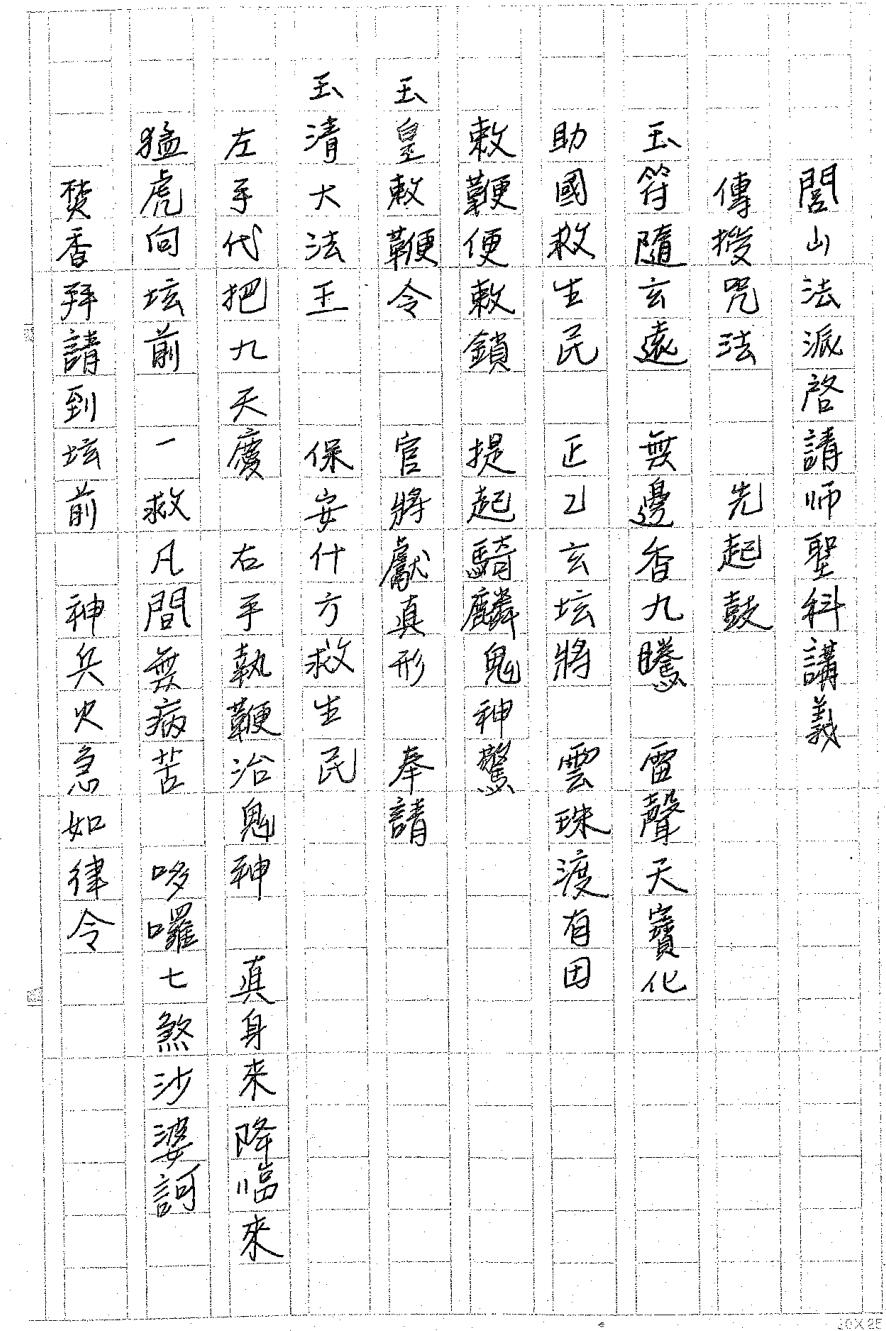 閭山法派啓請师聖科講義
傳授咒法 先起鼓
玉符隨玄遠 無邊香九騰 雷聲天寶化
助國救生民 正乙玄坛將 雲珠渡有因
敕鞭便敕鎖 提起騎麟鬼神驚
玉皇敕鞭令 官將獻真形 奉請
玉清大法王 保安什方救生民
左手代把九天慶 右手執鞭治鬼神 真身來降臨來
猛虎向坛前 一救凡間無病苦 哆囉七煞沙婆訶
焚香拜請到坛前 神兵火急如律令
20X25